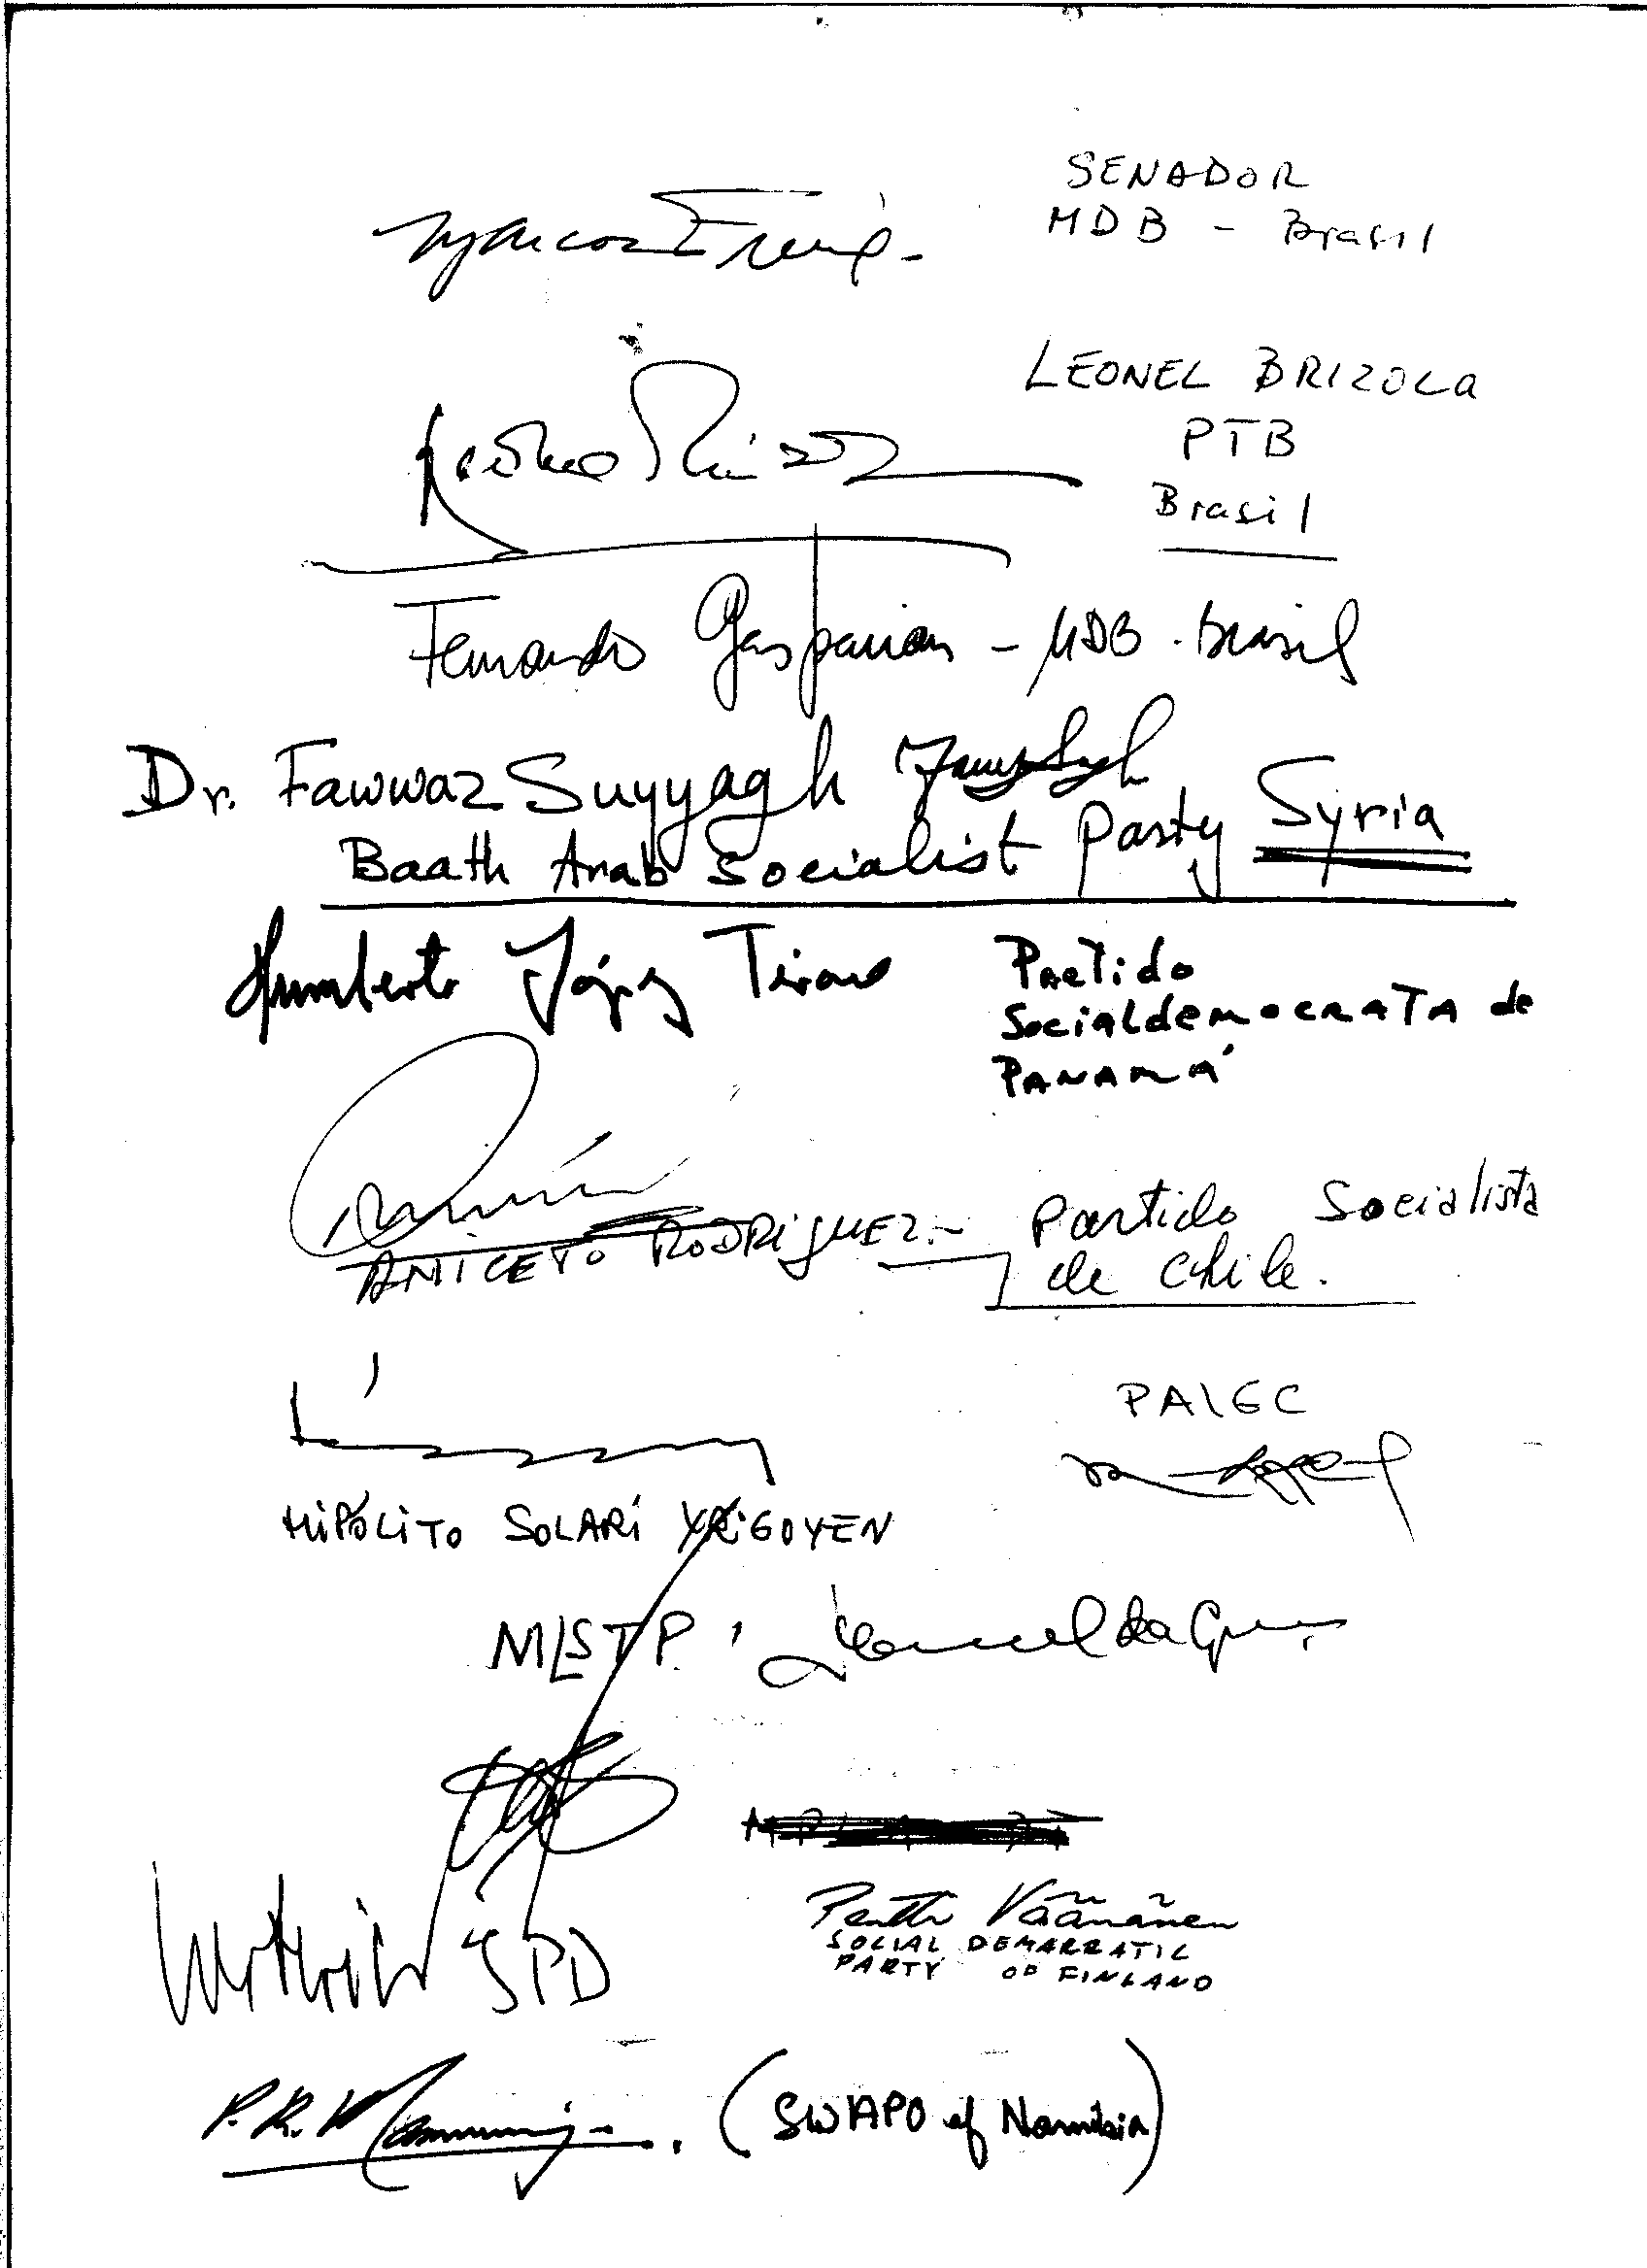 Marcos Freire - SENADOR
MDB - Brasil
LEONEL BRIZOLA
PTB
Brasil
Fernando Gasparian - MDB. Brasil
Dr. Fawwaz Suyyagh
Baath Arab Socialist Party Syria
Humberto López Tirone Partido
Socialdemocrata de
Panamá
ANICETO RODRIGUEZ.- Partido Socialista
de Chile.
PAIGC
HIPÓLITO SOLARI YRIGOYEN
MLSTP,
SPD
Pentti Väänänen
SOCIAL DEMARRATIC
PARTY OF FINLAND
(SWAPO of Namibia)